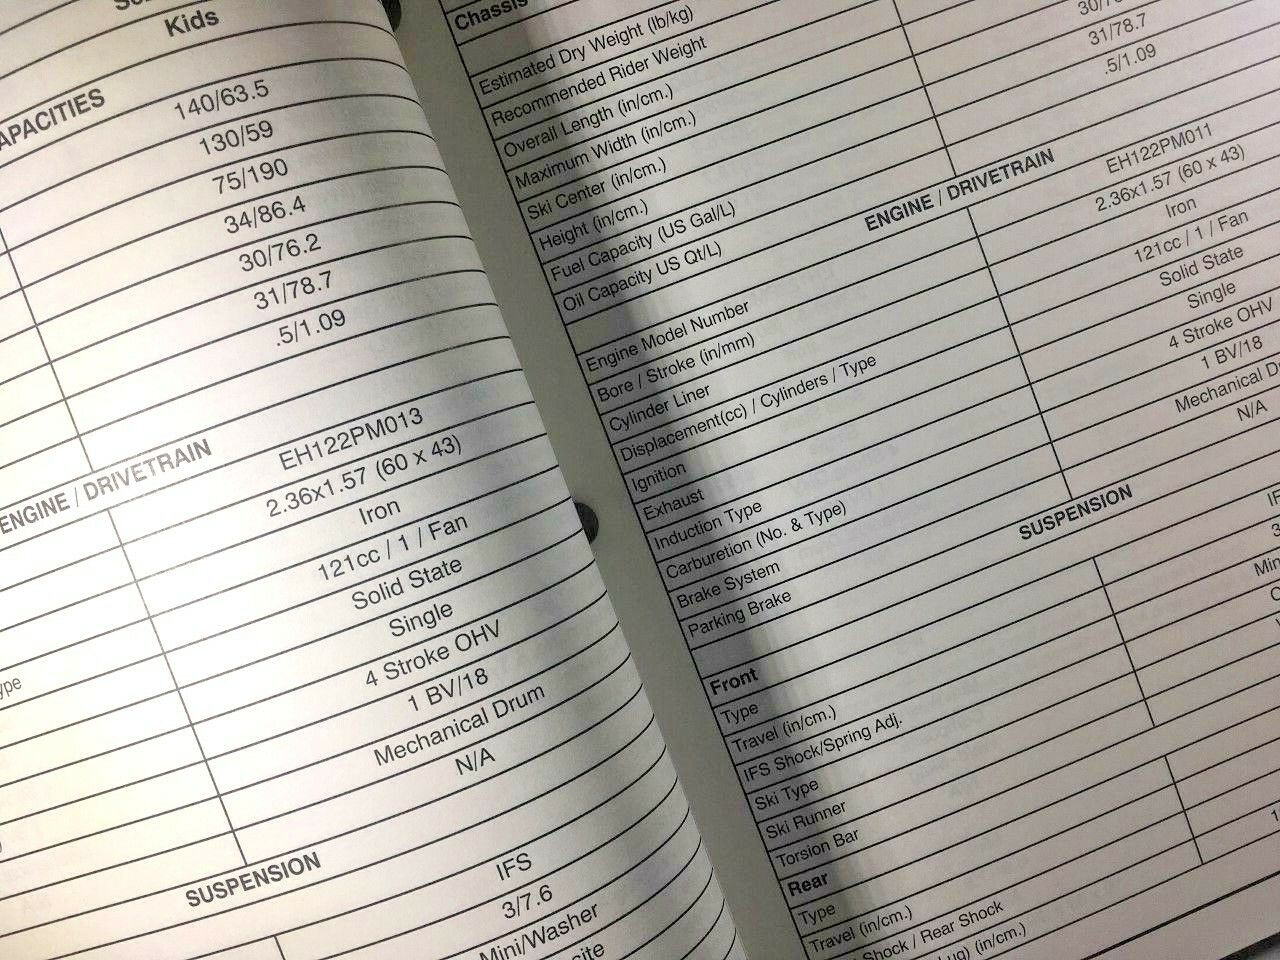 Kids
APACITIES
140/63.5
130/59
75/190
34/86.4
30/76.2
31/78.7
.5/1.09
ENGINE / DRIVETRAIN
EH122PM013
2.36x1.57 (60 x 43)
Iron
121cc / 1 / Fan
Solid State
ype Single
4 Stroke OHV
1 BV/18
Mechanical Drum
N/A
SUSPENSION
IFS
3/7.6
Mini/Washer
site
Chassis
Estimated Dry Weight (lb/kg)
Recommended Rider Weight
Overall Length (in/cm.)
Maximum Width (in/cm.)
Ski Center (in/cm.)
Height (in/cm.)
Fuel Capacity (US Gal/L) 31/78.7
Oil Capacity US Qt/L) .5/1.09
ENGINE / DRIVETRAIN
Engine Model Number EH122PM011
Bore / Stroke (in/mm) 2.36x1.57 (60 x 43)
Cylinder Liner Iron
Displacement(cc) / Cylinders / Type 121cc / 1 / Fan
Ignition Solid State
Exhaust Single
Induction Type 4 Stroke OHV
Carburetion (No. & Type) 1 BV/18
Brake System Mechanical Dr
Parking Brake N/A
SUSPENSION
Front
Type IF
Travel (in/cm.) 3
IFS Shock/Spring Adj. Min
Ski Type C
Ski Runner
Torsion Bar
Rear
Type
Travel (in/cm.)
Shock / Rear Shock
ug) (in/cm.)